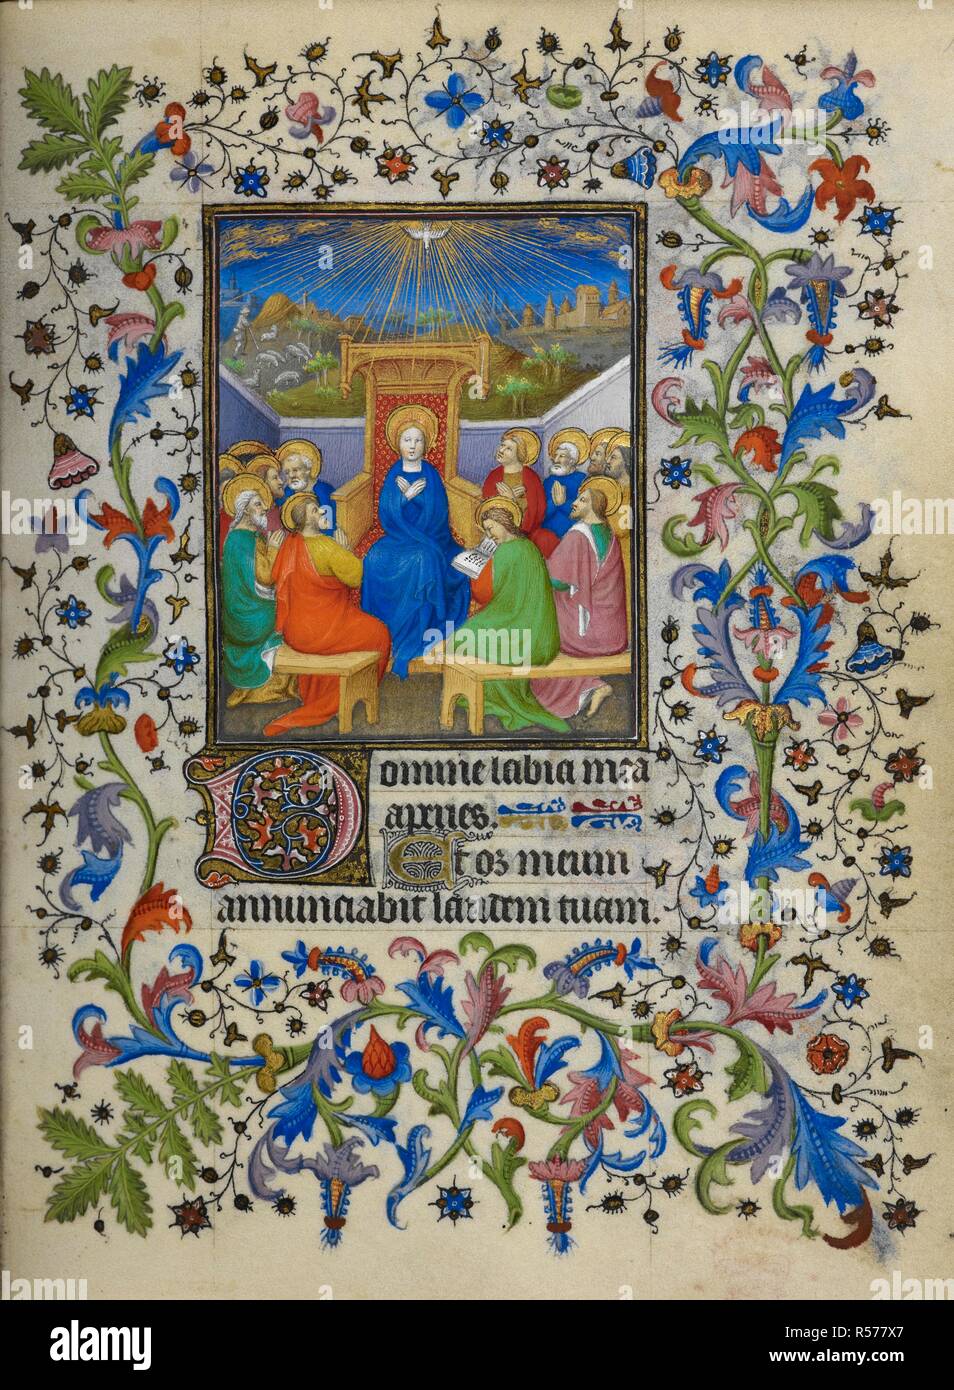 Domine labia mea
aperies.
Et os meum
annunciabit laudem tuam.
alamy
Image ID: R577X7
www.alamy.com